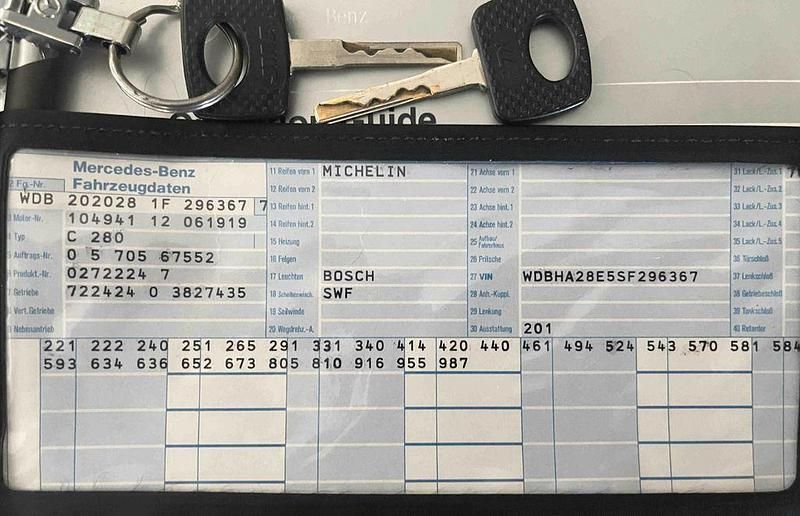 Benz
Guide
Mercedes-Benz
Fahrzeugdaten
2 Fg.-Nr.
WDB 202028 1F 296367 7
3 Motor-Nr. 104941 12 061919
4 Typ C 280
5 Auftrags-Nr. 0 5 705 67552
6 Produkt.-Nr. 0272224 7
7 Getriebe 722424 0 3827435
8 Vert.Getriebe
9 Nebenantrieb
11 Reifen vorn 1 MICHELIN
12 Reifen vorn 2
13 Reifen hint.1
14 Reifen hint.2
15 Heizung
16 Felgen
17 Leuchten BOSCH
18 Scheibenwisch. SWF
19 Seilwinde
20 Wegdrehz.-A.
21 Achse vorn 1
22 Achse vorn 2
23 Achse hint.1
24 Achse hint.2
25 Aufbau/
Fahrerhaus
26 Pritsche
27 VIN WDBHA28E5SF296367
28 Anh.-Kuppl.
29 Lenkung
30 Ausstattung 201
31 Lack/L.-Zus.1 7
32 Lack/L.-Zus.2
33 Lack/L.-Zus.3
34 Lack/L.-Zus.4
35 Lack/L.-Zus.5
36 Türschloß
37 Lenkschloß
38 Getriebeschloß
39 Tankschloß
40 Retarder
221 222 240 251 265 291 331 340 414 420 440 461 494 524 543 570 581 584
593 634 636 652 673 805 810 916 955 987